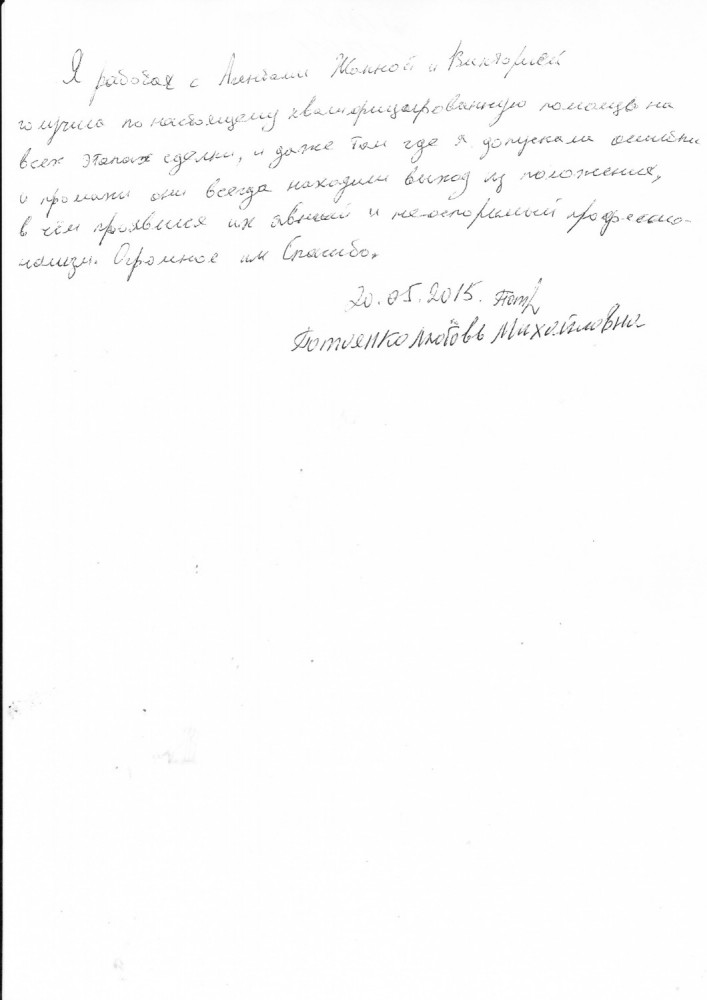 Я работая с Агентами Жанной и Викторией
получила по настоящему квалифицированную помощь на
всех этапах сделки, и даже там где я допускала ошибки
и промахи они всегда находили выход из положения,
в чём проявился их явный и неоспоримый професссио-
нализм. Огромное им Спасибо.
20.05.2015.
Любовь Михайловна